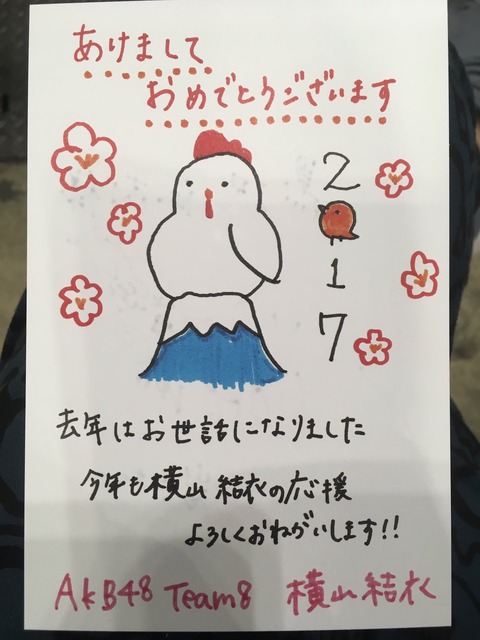 あけまして
おめでとうございます
2
1
7
去年はお世話になりました
今年も横山結衣の応援
よろしくおねがいします!!
AKB48 Team8 横山結衣